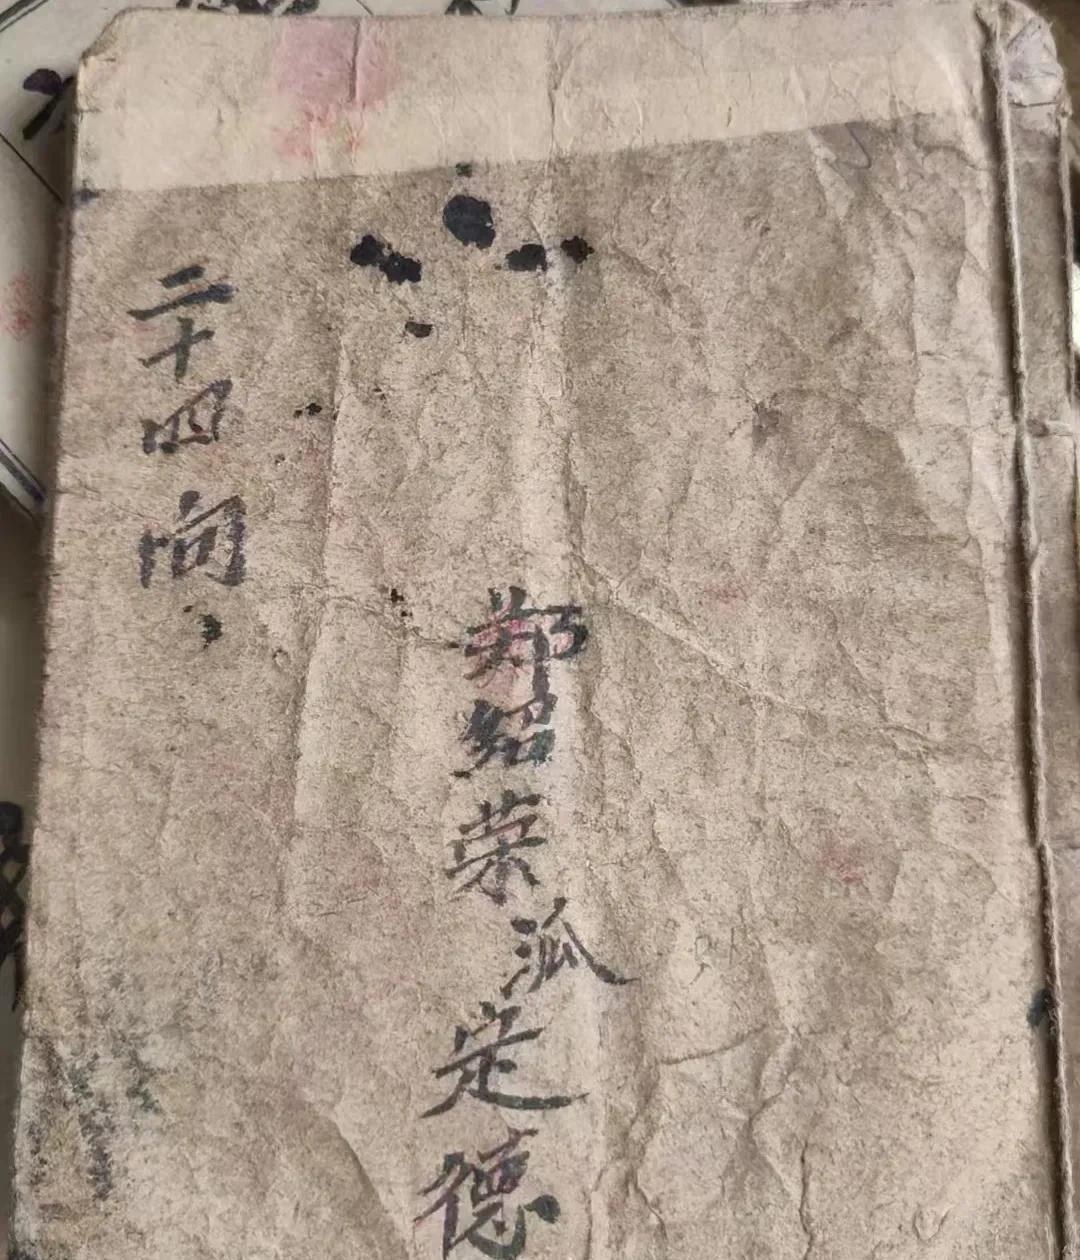 二十四向
郑绍荣泒定德